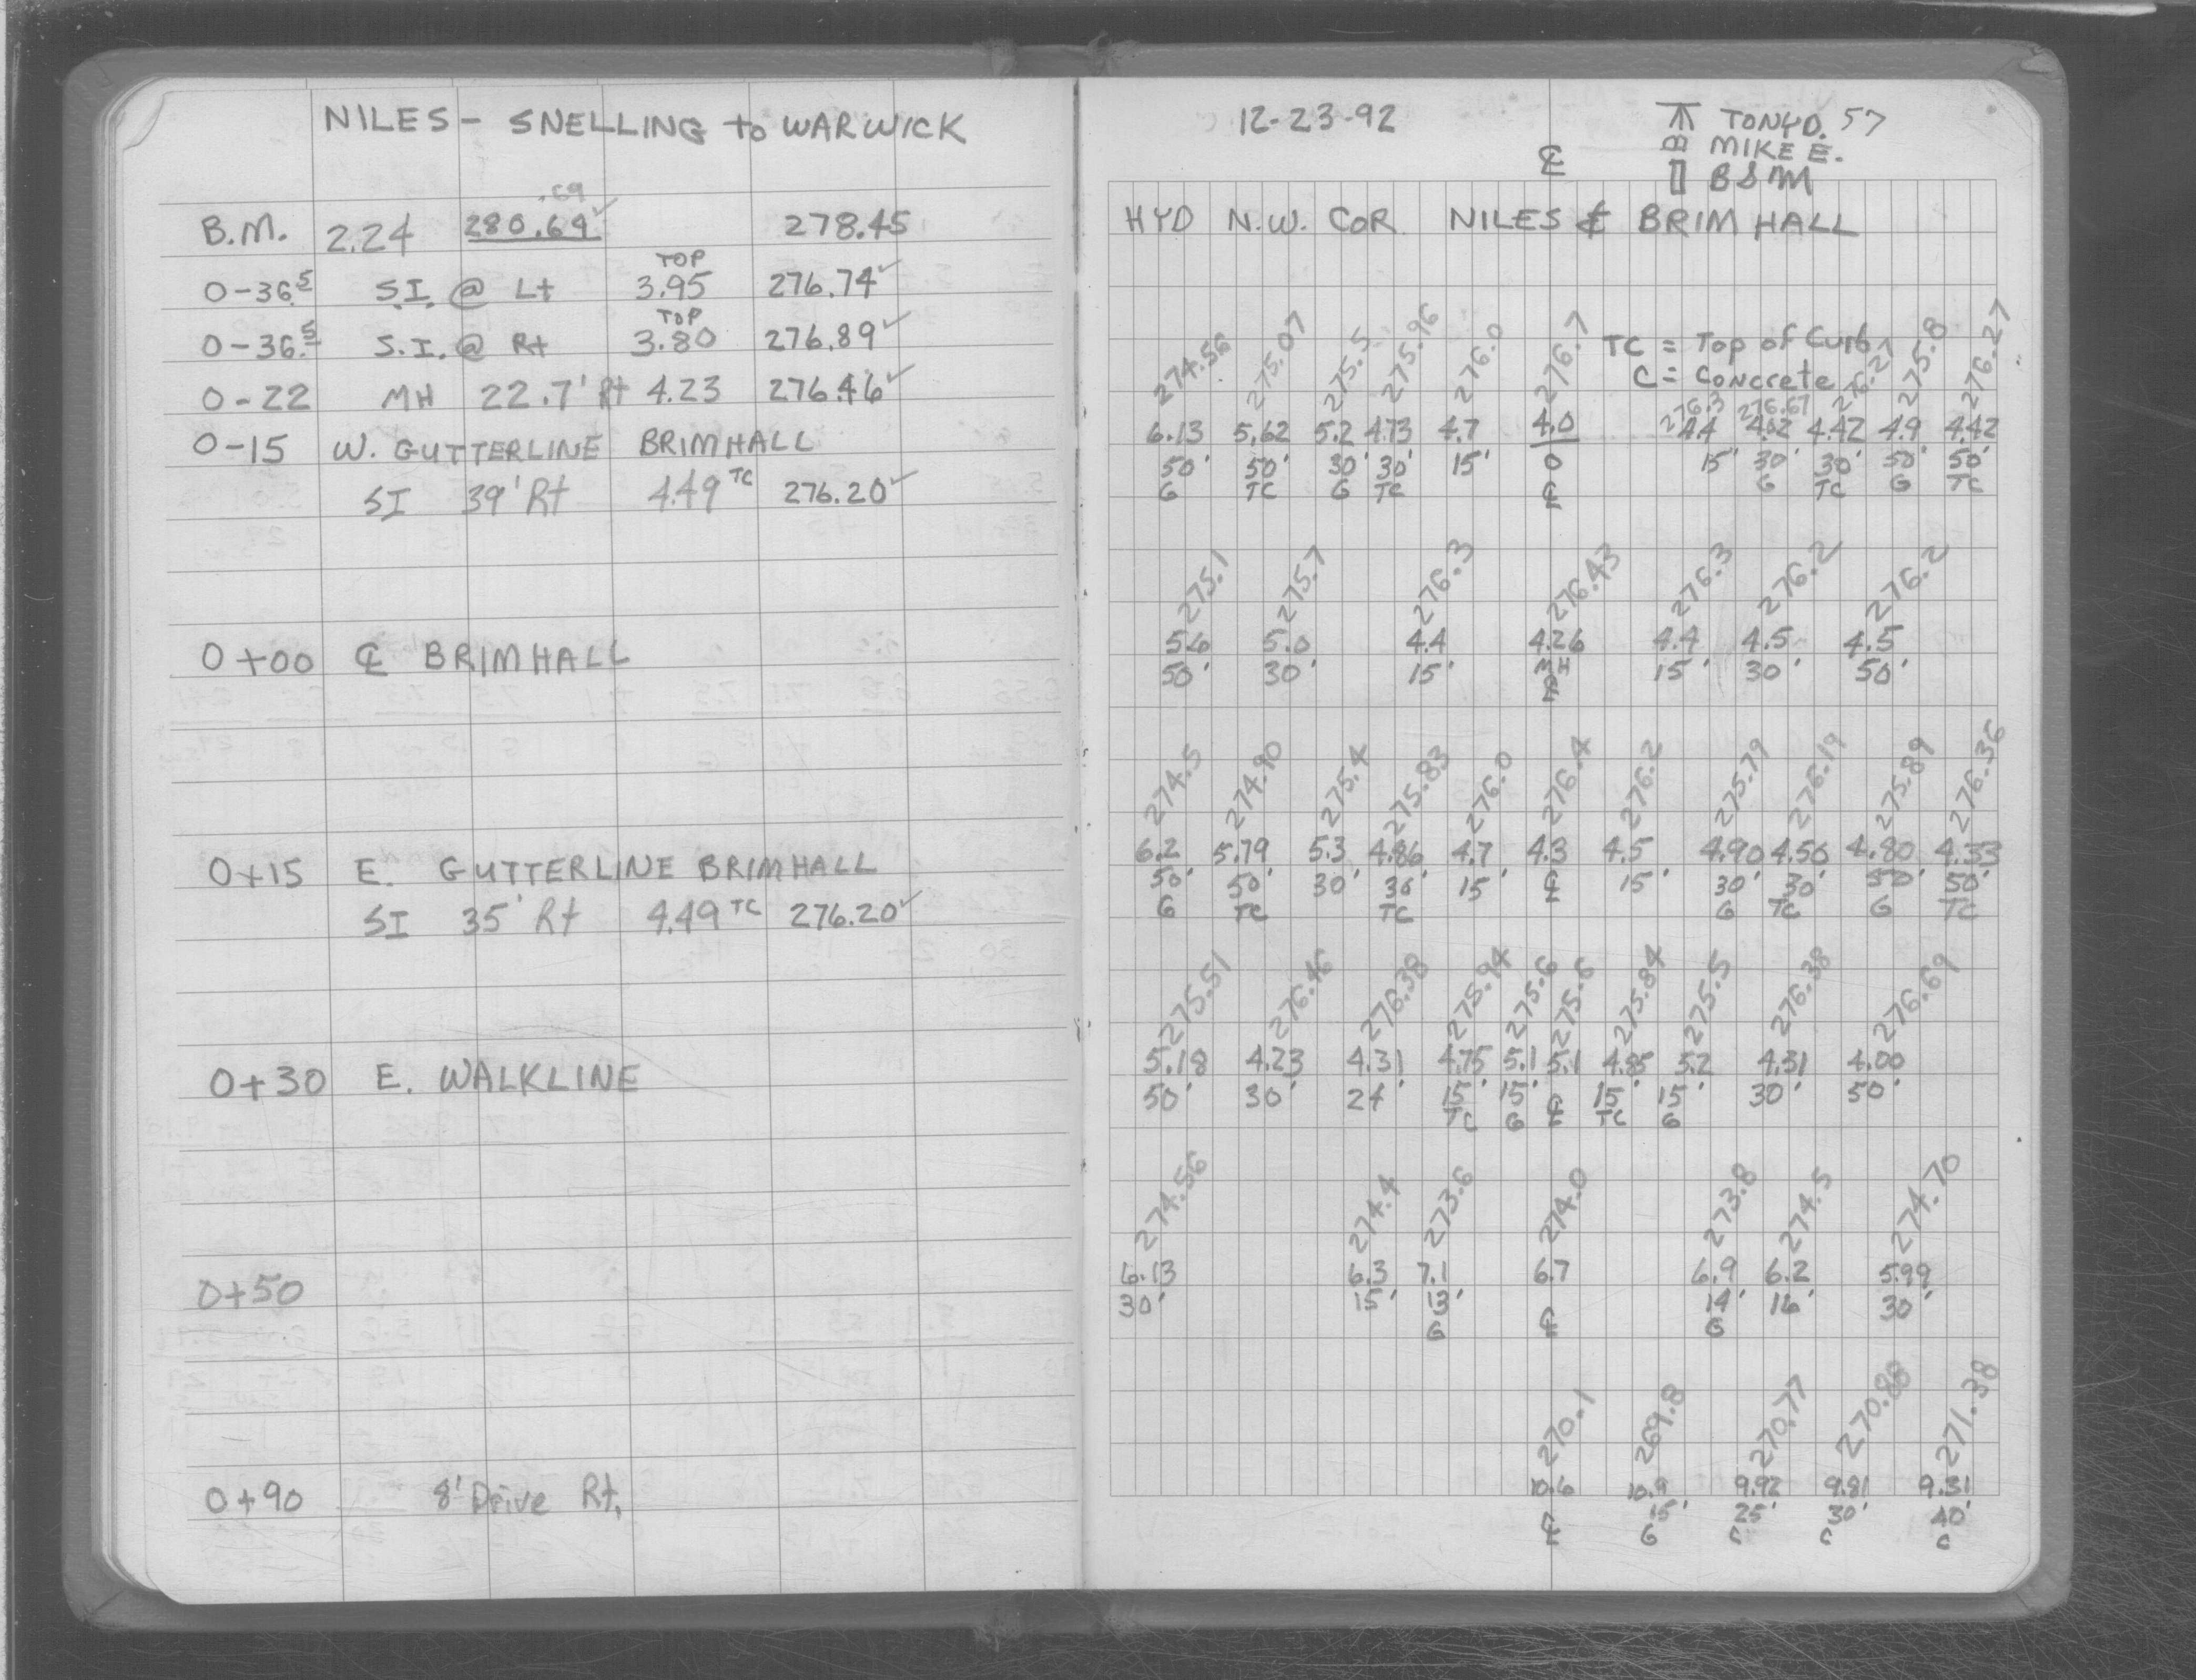 NILES - SNELLING to WARWICK
.69
B.M. 2.24 280.69 ✓ 278.45
TOP
0-36.5 S.I. @ Lt 3.95 276.74 ✓
TOP
0-36.5 S.I. @ Rt 3.80 276.89 ✓
0-22 MH 22.7' Rt 4.23 276.46 ✓
0-15 W. GUTTERLINE BRIMHALL
SI 39' Rt 4.49 TC 276.20 ✓
0+00 ℄ BRIMHALL
0+15 E. GUTTERLINE BRIMHALL
SI 35' Rt 4.49 TC 276.20 ✓
0+30 E. WALKLINE
0+50
0+90 8' Drive Rt.
12-23-92
TONY D. 57
MIKE E.
℄ B & M
HYD N.W. COR NILES & BRIMHALL
TC = Top of Curb
C = Concrete
274.56 275.07 275.5 275.96 276.0 276.7 276.3 276.67 276.27 275.8 276.27
6.13 5.62 5.2 4.73 4.7 4.0 4.4 4.02 4.42 4.9 4.42
50' 50' 30' 30' 15' 0 15' 30' 30' 50' 50'
G TC G TC ℄ G TC G TC
275.1 275.7 276.3 276.43 276.3 276.2 276.2
5.6 5.0 4.4 4.26 4.4 4.5 4.5
50' 30' 15' MH 15' 30' 50'
℄
274.5 274.90 275.4 275.83 276.0 276.4 276.2 275.79 276.19 275.89 276.36
6.2 5.79 5.3 4.86 4.7 4.3 4.5 4.90 4.50 4.80 4.33
50' 50' 30' 30' 15' ℄ 15' 30' 30' 50' 50'
G TC TC G TC G TC
275.51 276.46 276.38 275.94 275.6 275.6 275.84 275.5 276.38 276.69
5.18 4.23 4.31 4.75 5.1 5.1 4.85 5.2 4.31 4.00
50' 30' 24' 15' 15' ℄ 15' 15' 30' 50'
TC G TC G
274.56 274.4 273.6 274.0 273.8 274.5 274.70
6.13 6.3 7.1 6.7 6.9 6.2 5.99
30' 15' 13' 14' 16' 30'
G ℄ G
270.1 269.8 270.77 270.88 271.38
10.6 10.9 9.92 9.81 9.31
15' 25' 30' 40'
℄ G C C C